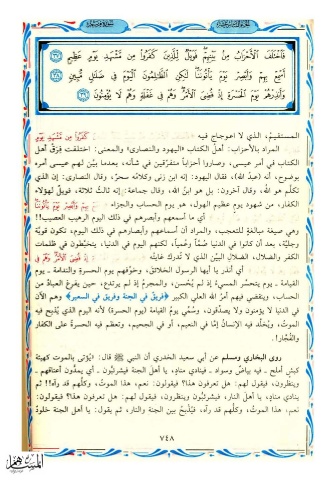 فَاخْتَلَفَ الْأَحْزَابُ مِنْ بَيْنِهِمْ فَوَيْلٌ لِلَّذِينَ كَفَرُوا مِنْ مَشْهَدِ يَوْمٍ عَظِيمٍ
أَسْمِعْ بِهِمْ وَأَبْصِرْ يَوْمَ يَأْتُونَنَا لَكِنِ الظَّالِمُونَ الْيَوْمَ فِي ضَلَالٍ مُبِينٍ
وَأَنْذِرْهُمْ يَوْمَ الْحَسْرَةِ إِذْ قُضِيَ الْأَمْرُ وَهُمْ فِي غَفْلَةٍ وَهُمْ لَا يُؤْمِنُونَ
المستقيمُ، الذي لا اعوجاج فيه
المراد بالأحزاب: أهلُ الكتاب «اليهود والنصارى» والمعنى: اختلفت فِرَقُ أهل
الكتاب في أمر عيسى، وصاروا أحزاباً متفرِّقين في شأنه، بعدما بيّن لهم عيسى أمره
بوضوح، أنه (عبدُ الله)، فقال اليهود: إنه ابن زنى وكلامه سحرٌ، وقال النصارى: إن الذي
تكلَّم هو الله، وقال آخرون: بل هو ابنُ الله، وقال جماعة: إنه ثالث ثلاثة، فويلٌ لهؤلاء
الكفار، من شهود يوم عظيم الهول، هو يوم الحساب والجزاء
أي ما أسمعهم وأبصرهم في ذلك اليوم الرهيب العصيب!!
وهي صيغة مبالغةٍ للتعجب، والمراد أن أسماعهم وأبصارهم في ذلك اليوم، تكون قويَّة
وجليَّة، بعد أن كانوا في الدنيا صُمّاً وعُمياً، لكنهم اليوم في الدنيا، يتخبَّطون في ظلمات
الكفر والضلال، الضلالِ البيِّن الذي لا تُدرك غايتُه
أي أنذر يا أيها الرسول الخلائق، وخوِّفهم يوم الحسرةِ والندامة - يوم
القيامة - يوم يتحسر المسيءُ إذ لم يُحسن، والمجرمُ إذ لم يرتدع، حين يفرغ العبادُ من
الحساب، وينقضي فيهم أمرُ الله العلي الكبير ﴿فريقٌ في الجنة وفريق في السعير﴾ وهم الآن
في الدنيا لا يؤمنون ولا يصدِّقون، وسُمِّي يومُ القيامة (يوم الحسرة) لأنه اليوم الذي يُذبح فيه
الموتُ، ويُخلَّد فيه الإنسانُ إمَّا في النعيم، أو في الجحيم، وتعظم فيه الحسرةُ على الكفار
والفُجَّار!.
روى البخاري ومسلم عن أبي سعيد الخدري أن النبي ﷺ قال: «يُؤتى بالموت كهيئة
كبشٍ أملح - فيه بياضٌ وسواد -، فينادي منادٍ، يا أهل الجنة فيشرئبُّون - أي يمدُّون أعناقهم -
وينظرون، فيقول لهم: هل تعرفون هذا؟ فيقولون: نعم، هذا الموتُ، وكلُّهم قد رآه!! ثم
ينادي منادٍ، يا أهل النار، فيشرئبُّون وينظرون، فيقول لهم: هل تعرفون هذا؟ فيقولون:
نعم، هذا الموتُ، وكلُّهم قد رآه، فيُذبحُ بين الجنة والنار، ثم يقول: يا أهل الجنة خلودٌ
٧٤٨